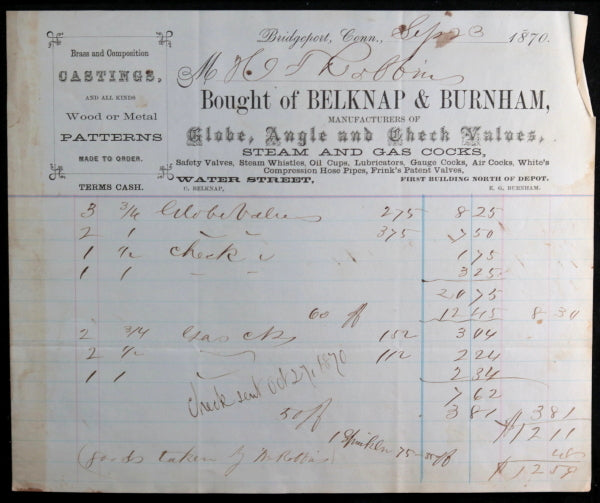 Bridgeport, Conn., Sep 23 1870.
Brass and Composition
CASTINGS,
AND ALL KINDS
Wood or Metal
PATTERNS
MADE TO ORDER.
TERMS CASH.
M H I & T Robbins
Bought of BELKNAP & BURNHAM,
MANUFACTURERS OF
Globe, Angle and Check Valves,
STEAM AND GAS COCKS,
Safety Valves, Steam Whistles, Oil Cups, Lubricators, Gauge Cocks, Air Cocks, White's
Compression Hose Pipes, Frink's Patent Valves,
WATER STREET, FIRST BUILDING NORTH OF DEPOT.
U. BELKNAP, E. G. BURNHAM.
3 3/4 Globe Valves 275 8 25
2 1 " " 375 7 50
1 1/2 Check " 1 75
1 1 " " 3 25
20 75
60 off 12 45 8 30
2 3/4 Gas Cks 152 3 04
2 1/2 " 112 2 24
1 1 " 2 34
7 62
50 off 3 81 3 81
$12 11
Check sent Oct 27, 1870
1 75 off 48
$12 59
Goods taken by Mr Robbins